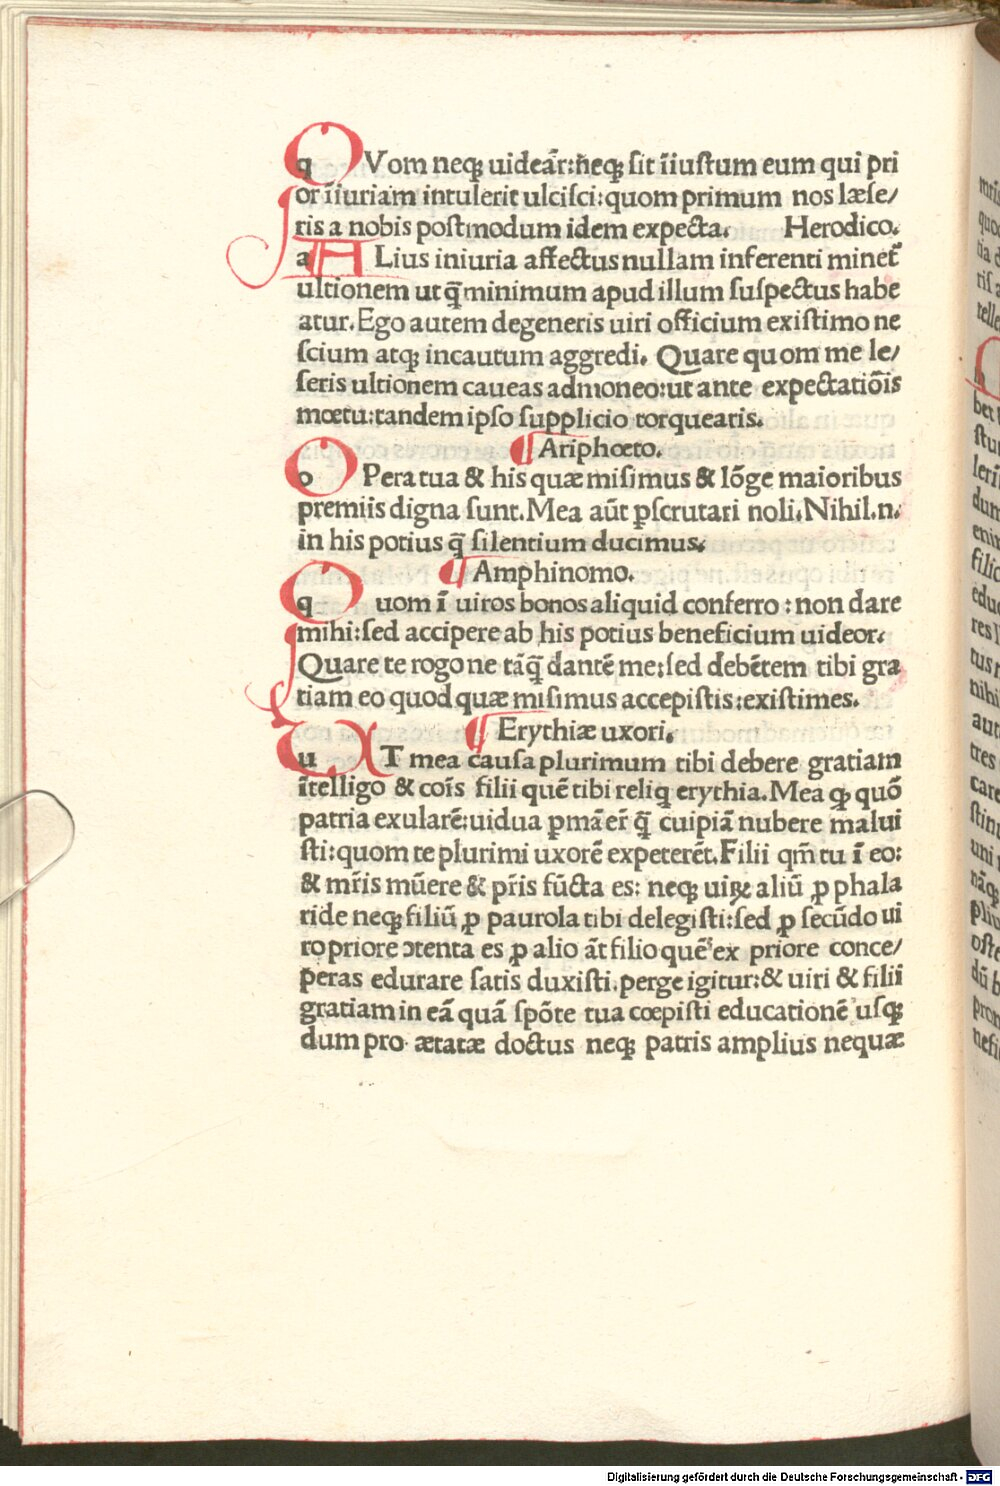 QVom neqꝫ uideãr:neqꝫ sit ĩiustum eum qui pri
or ĩiuriam intulerit ulcisci:quom primum nos læse/
ris a nobis postmodum idem expecta. Herodico.
ALius iniuria affectus nullam inferenti minet̃
ultionem ut q̃ minimum apud illum suspectus habe
atur. Ego autem degeneris uiri officium existimo ne
scium atqꝫ incautum aggredi. Quare quom me le/
seris ultionem caueas admoneo:ut ante expectatiõis
mœtu:tandem ipso supplicio torquearis.
¶ Ariphœto.
OPera tua & his quæ misimus & lõge maioribus
premiis digna sunt. Mea aũt ꝑscrutari noli. Nihil.n.
in his potius q̃ silentium ducimus.
¶ Amphinomo.
Quom ĩ uiros bonos aliquid conferro : non dare
mihi:sed accipere ab his potius beneficium uideor.
Quare te rogo ne tãq̃ dantẽ me:sed debẽtem tibi gra
tiam eo quod quæ misimus accepistis:existimes.
¶ Erythiæ uxori.
UT mea causa plurimum tibi debere gratiam
ĩtelligo & coĩs filii quẽ tibi reliq erythia. Mea qꝫ quõ
patria exularẽ:uidua ꝑmãer̃ q̃ cuipiã nubere malui
sti:quom te plurimi uxorẽ expeterẽt. Filii qm̃ tu ĩ eo:
& mr̃is mũere & pr̃is fũcta es: neqꝫ uiꝝ aliũ ꝓ phala
ride neqꝫ filiũ ꝓ paurola tibi delegisti:sed ꝓ secũdo ui
ro priore ↄtenta es ꝓ alio ãt filio quẽ ex priore conce/
peras edurare satis duxisti. perge igitur:& uiri & filii
gratiam in eã quã spõte tua cœpisti educationẽ usqꝫ
dum pro ætatæ doctus neqꝫ patris amplius nequæ
Digitalisierung gefördert durch die Deutsche Forschungsgemeinschaft - DFG